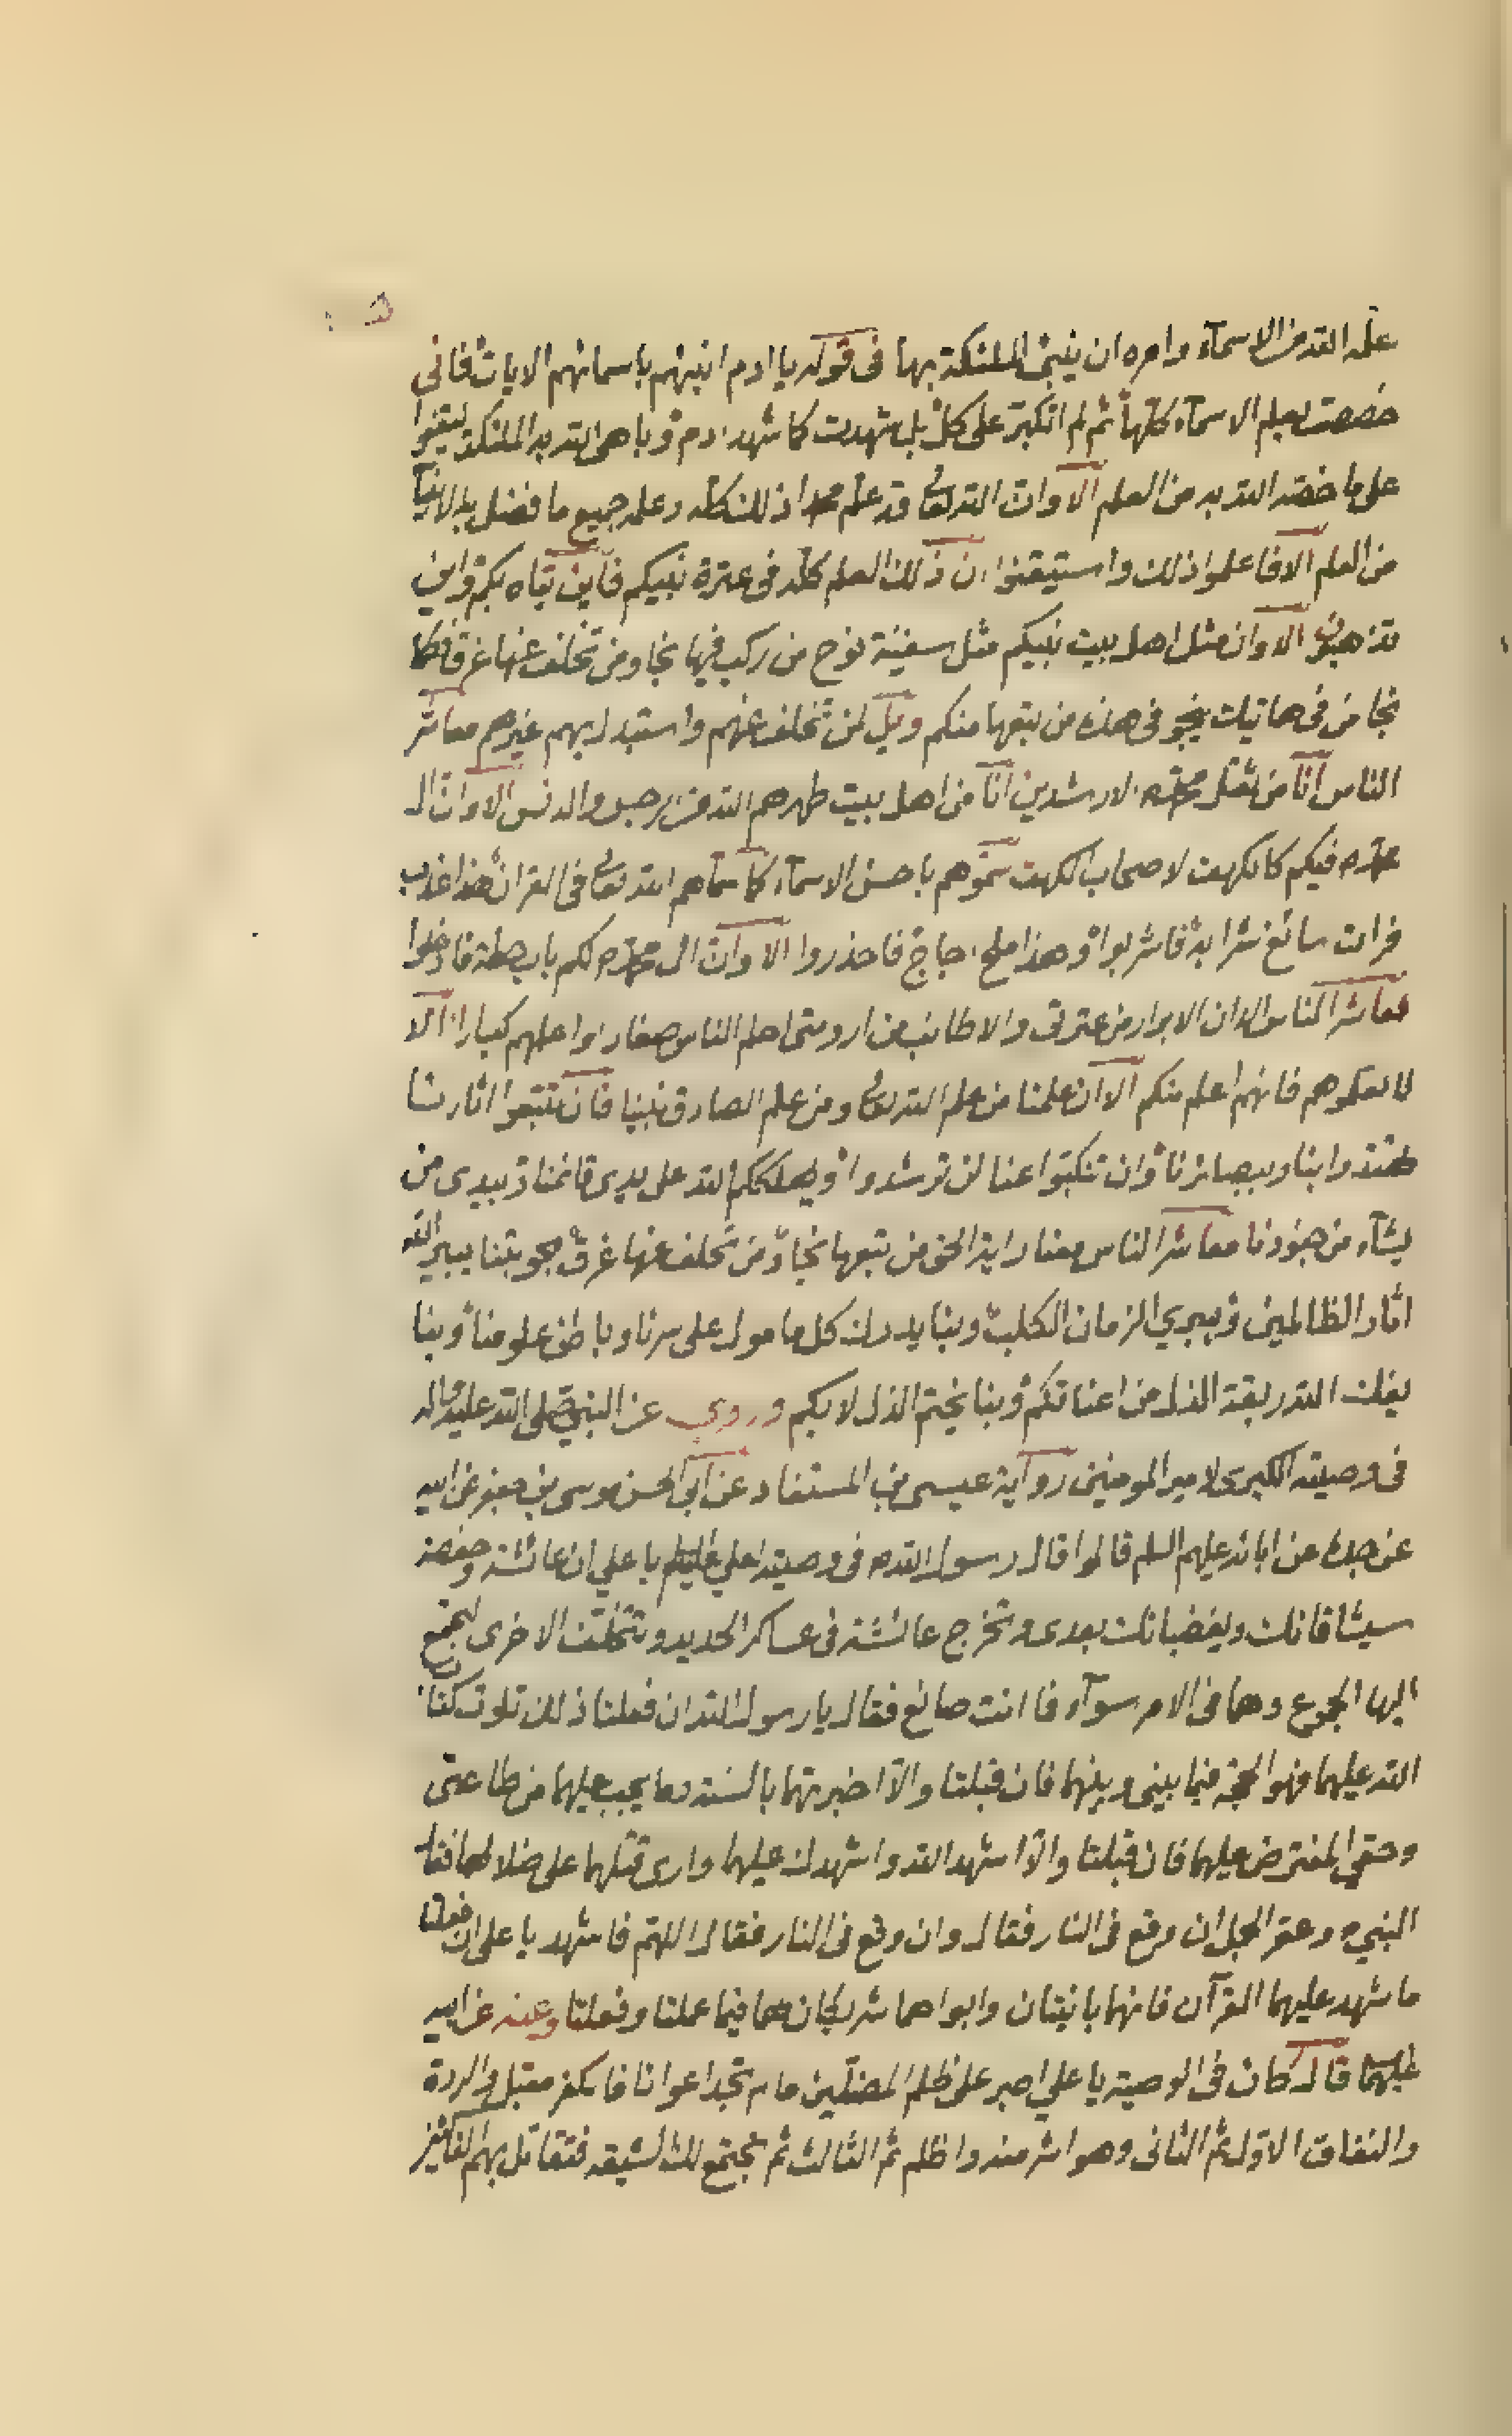 علمه الله من الاسمآء وامره ان ينبئ الملئكة بها فى قوله يا ادم انبئهم باسمائهم الايات فانى
خصصت بعلم الاسمآء كلها ثم لم اتكبر على كل بل شهدت كما شهد ادم وباهى الله به الملئكة ليتقنوا
على ما خصه الله به من العلم الا وان الله تعالى قد علم محمدا ذلك كله وعلمه جميع ما فضل به الانبيآء
من العلم الا فاعلموا ذلك واستيقنوا ان ذلك العلم كله فى عترة نبيكم فاين يتاه بكم واين
تذهبون الا وان مثل اهل بيت نبيكم مثل سفينة نوح من ركب فيها نجا ومن تخلف عنها غرق فكما
نجا من فى هاتيك ينجو فى هذه من يتبعها منكم ويل لمن تخلف عنهم واستبدل بهم غيرهم معاشر
الناس انا من ثقل محمد الارشدين انا من اهل بيت طهرهم الله من الرجس والدنس الا وان ال
محمد فيكم كالكهف لاصحاب الكهف سموهم باحسن الاسمآء كما سماهم الله تعالى فى القران هذا عذب
فرات سائغ شرابه فاشربوا وهذا ملح اجاج فاحذروا الا وان ال محمد لكم باب حطة فادخلوا
معاشر الناس الا وان الابرار من عترتى والاطائب من ارومتى احلم الناس صغارا واعلهم كبارا الا
لا تعلموهم فانهم اعلم منكم الا ان علمنا من علم الله تعالى ومن علم الصادق نبينا فان تتبعوا اثارنا
تهتدوا بنا وببصائرنا وان تنكبوا عنا لن ترشدوا ويهلككم الله على يدى قائمنا وبيدى من
يشآء من جنودنا معاشر الناس معنا راية الحق من يتبعها نجا ومن تخلف عنها غرق بنا يبير الله
اثار الظالمين وبيدي الزمان الكلب وبنا يدرك كل مامول على سرنا وباطن علومنا وبنا
يفك الله ربقة الذل من اعناقكم وبنا يختم الذل لا بكم وروي عن النبي صلى الله عليه واله
فى وصيته الكبرى لامير المومنين رواية عيسى بن المستفاد عن ابى الحسن موسى بن جعفر عن ابيه
عن جده عن ابائه عليهم السلم قالوا قال رسول الله فى وصيته لعلي عليه السلم يا علي ان عائشة وحفصة
سيشاقانك ويغضبانك بعدى وتخرج عائشة فى عساكر الحديد وتتخلف الاخرى لتجمع
اليها الجموع وهما فى الامر سوآء فما انت صانع فقال يا رسول الله ان فعلتا ذلك تلوت كتاب
الله عليهما فهو الحجة فيما بينى وبينهما فان قبلتا والا اخبرتهما بالسنة وما يجب عليهما من طاعتى
وحقي المفترض عليهما فان قبلتا والا اشهد الله واشهدك عليهما وارى قتلهما على ضلالهما فقال
النبى وعقر الجمل ان وقع فى النار فقال وان وقع فى النار فقال اللهم فاشهد يا على ان فعلتا
ما شهد عليهما القرآن فانهما باينتان وابواهما شريكان لهما فيما عملتا وفعلتا وعنه عن ابيه
عليهما قال كان فى الوصية يا علي اصبر على ظلم المضلين ما لم تجد اعوانا فالكفر مقبل والردة
والنفاق الاول ثم الثانى وهو اشر منه واظلم ثم الثالث ثم تجتمع لك الشيعه فتقاتل بهم الناكثين